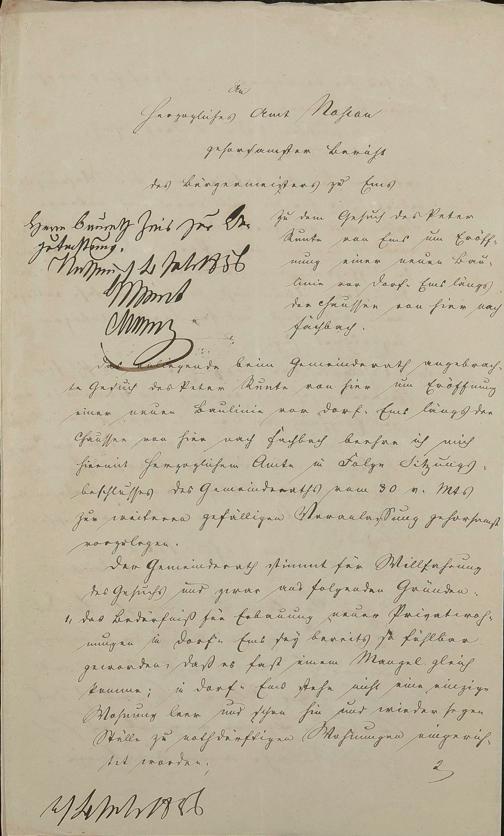 An
Herzogliches Amt Nassau
gehorsamster Bericht
des Bürgermeisters zu Ems
zu dem Gesuch des Peter
Kunte von Ems um Eröff-
nung einer neuen Bau-
linie vor Dorf-Ems längs
der Chaussee von hier nach
Fachbach.
Herrn Baurath zur
Nassau, 2 1856
Das anliegende beim Gemeinderath angebrach-
te Gesuch des Peter Kunte von hier um Eröffnung
einer neuen Baulinie vor Dorf-Ems längs der
Chaussee von hier nach Fachbach beehre ich mich
hiermit Herzoglichem Amte in Folge Sitzungs-
beschlusses des Gemeinderaths vom 30 v. Mts
zur weiteren gefälligen Veranlassung gehorsamst
vorzulegen.
Der Gemeinderath stimmt für Willfahrung
des Gesuchs und zwar aus folgenden Gründen.
1, das Bedürfniß für Erbauung neuer Privatwoh-
nungen in Dorf-Ems sey bereits so fühlbar
geworden, daß es fast einem Mangel gleich
komme; in Dorf-Ems stehe nicht eine einzige
Wohnung leer und schon hin und wieder
Ställe zu nothdürftigen Wohnungen eingerich-
tet worden;
2
1856